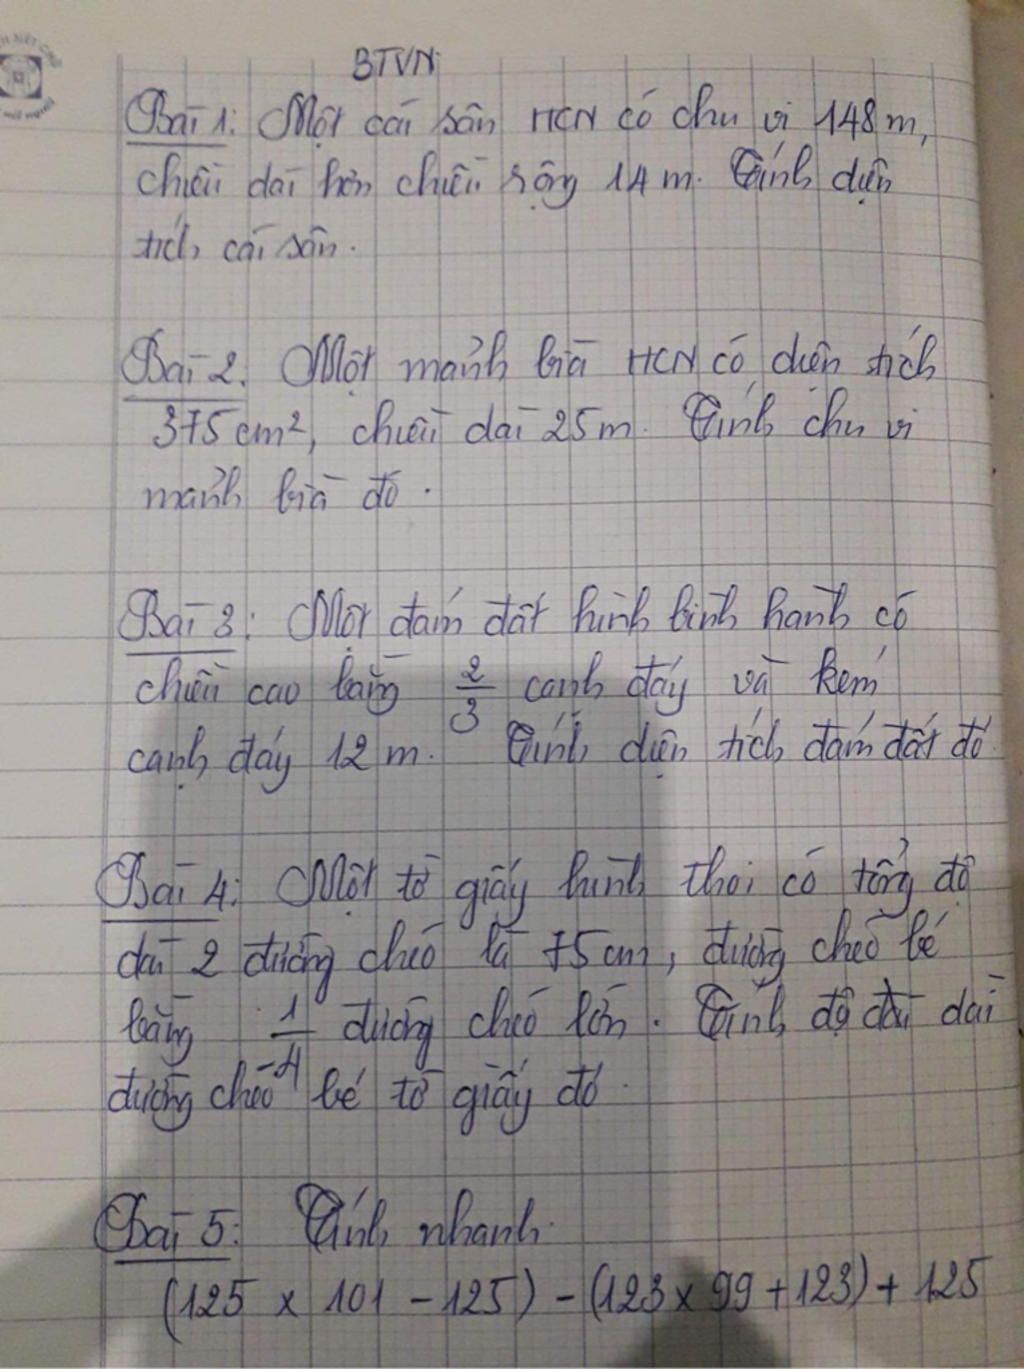 BTVN:
Bài 1: Một cái sân HCN có chu vi 148 m,
chiều dài hơn chiều rộng 14 m. Tính diện
tích cái sân.
Bài 2. Một mảnh bìa HCN có diện tích
375 cm², chiều dài 25 m. Tính chu vi
mảnh bìa đó.
Bài 3: Một đám đất hình bình hành có
chiều cao bằng 2/3 cạnh đáy và kém
cạnh đáy 12 m. Tính diện tích đám đất đó.
Bài 4: Một tờ giấy hình thoi có tổng độ
dài 2 đường chéo là 75 cm, đường chéo bé
bằng 1/4 đường chéo lớn. Tính độ dài dài
đường chéo bé tờ giấy đó.
Bài 5: Tính nhanh.
(125 x 101 - 125) - (123 x 99 + 123) + 125